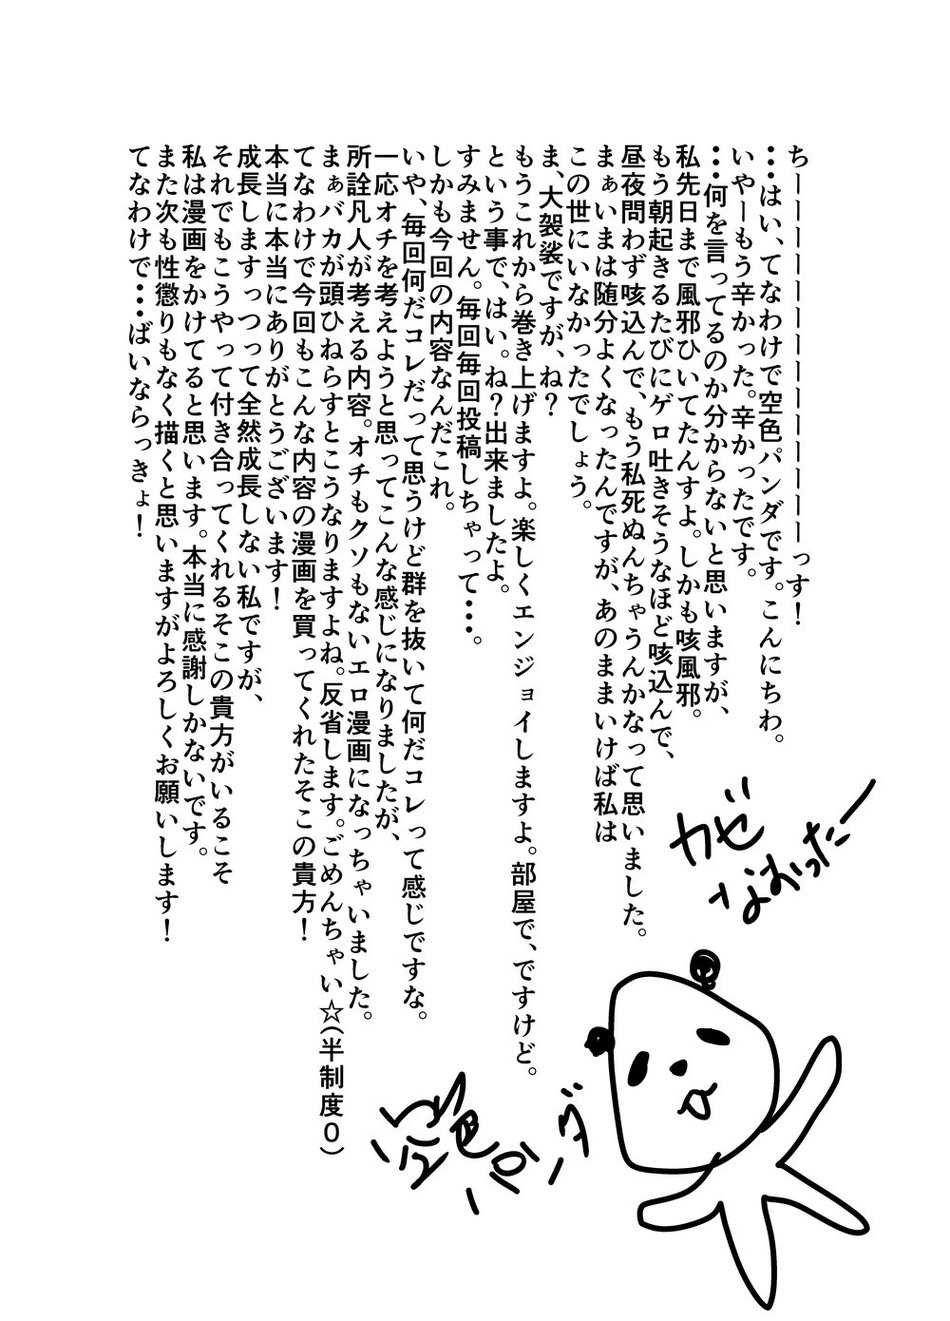 ちーーーーーーーーーーーーーっす！
・・・はい、てなわけで空色パンダです。こんにちわ。
いやーもう辛かった。辛かったです。
・・・何を言ってるのか分からないと思いますが、
私先日まで風邪ひいてたんすよ。しかも咳風邪。
もう朝起きるたびにゲロ吐きそうなほど咳込んで、
昼夜問わず咳込んで、もう私死ぬんちゃうんかなって思いました。
まぁいまは随分よくなったんですが、あのままいけば私は
この世にいなかったでしょう。
ま、大袈裟ですが、ね？
もうこれから巻き上げますよ。楽しくエンジョイしますよ。部屋で、ですけど。
という事で、はい。ね？出来ましたよ。
すみません。毎回毎回投稿しちゃって・・・。
しかも今回の内容なんだこれ。
いや、毎回何だコレだって思うけど群を抜いて何だコレって感じですな。
一応オチを考えようと思ってこんな感じになりましたが、
所詮凡人が考える内容。オチもクソもないエロ漫画になっちゃいました。
まぁバカが頭ひねらすとこうなりますよね。反省します。ごめんちゃい☆(半制度０)
てなわけで今回もこんな内容の漫画を買ってくれたそこの貴方！
本当に本当にありがとうございます！
成長しますっつって全然成長しない私ですが、
それでもこうやって付き合ってくれるそこの貴方がいるこそ
私は漫画をかけてると思います。本当に感謝しかないです。
また次も性懲りもなく描くと思いますがよろしくお願いします！
てなわけで・・・ばいならっきょ！
カゼ
なおったー
空色パンダ